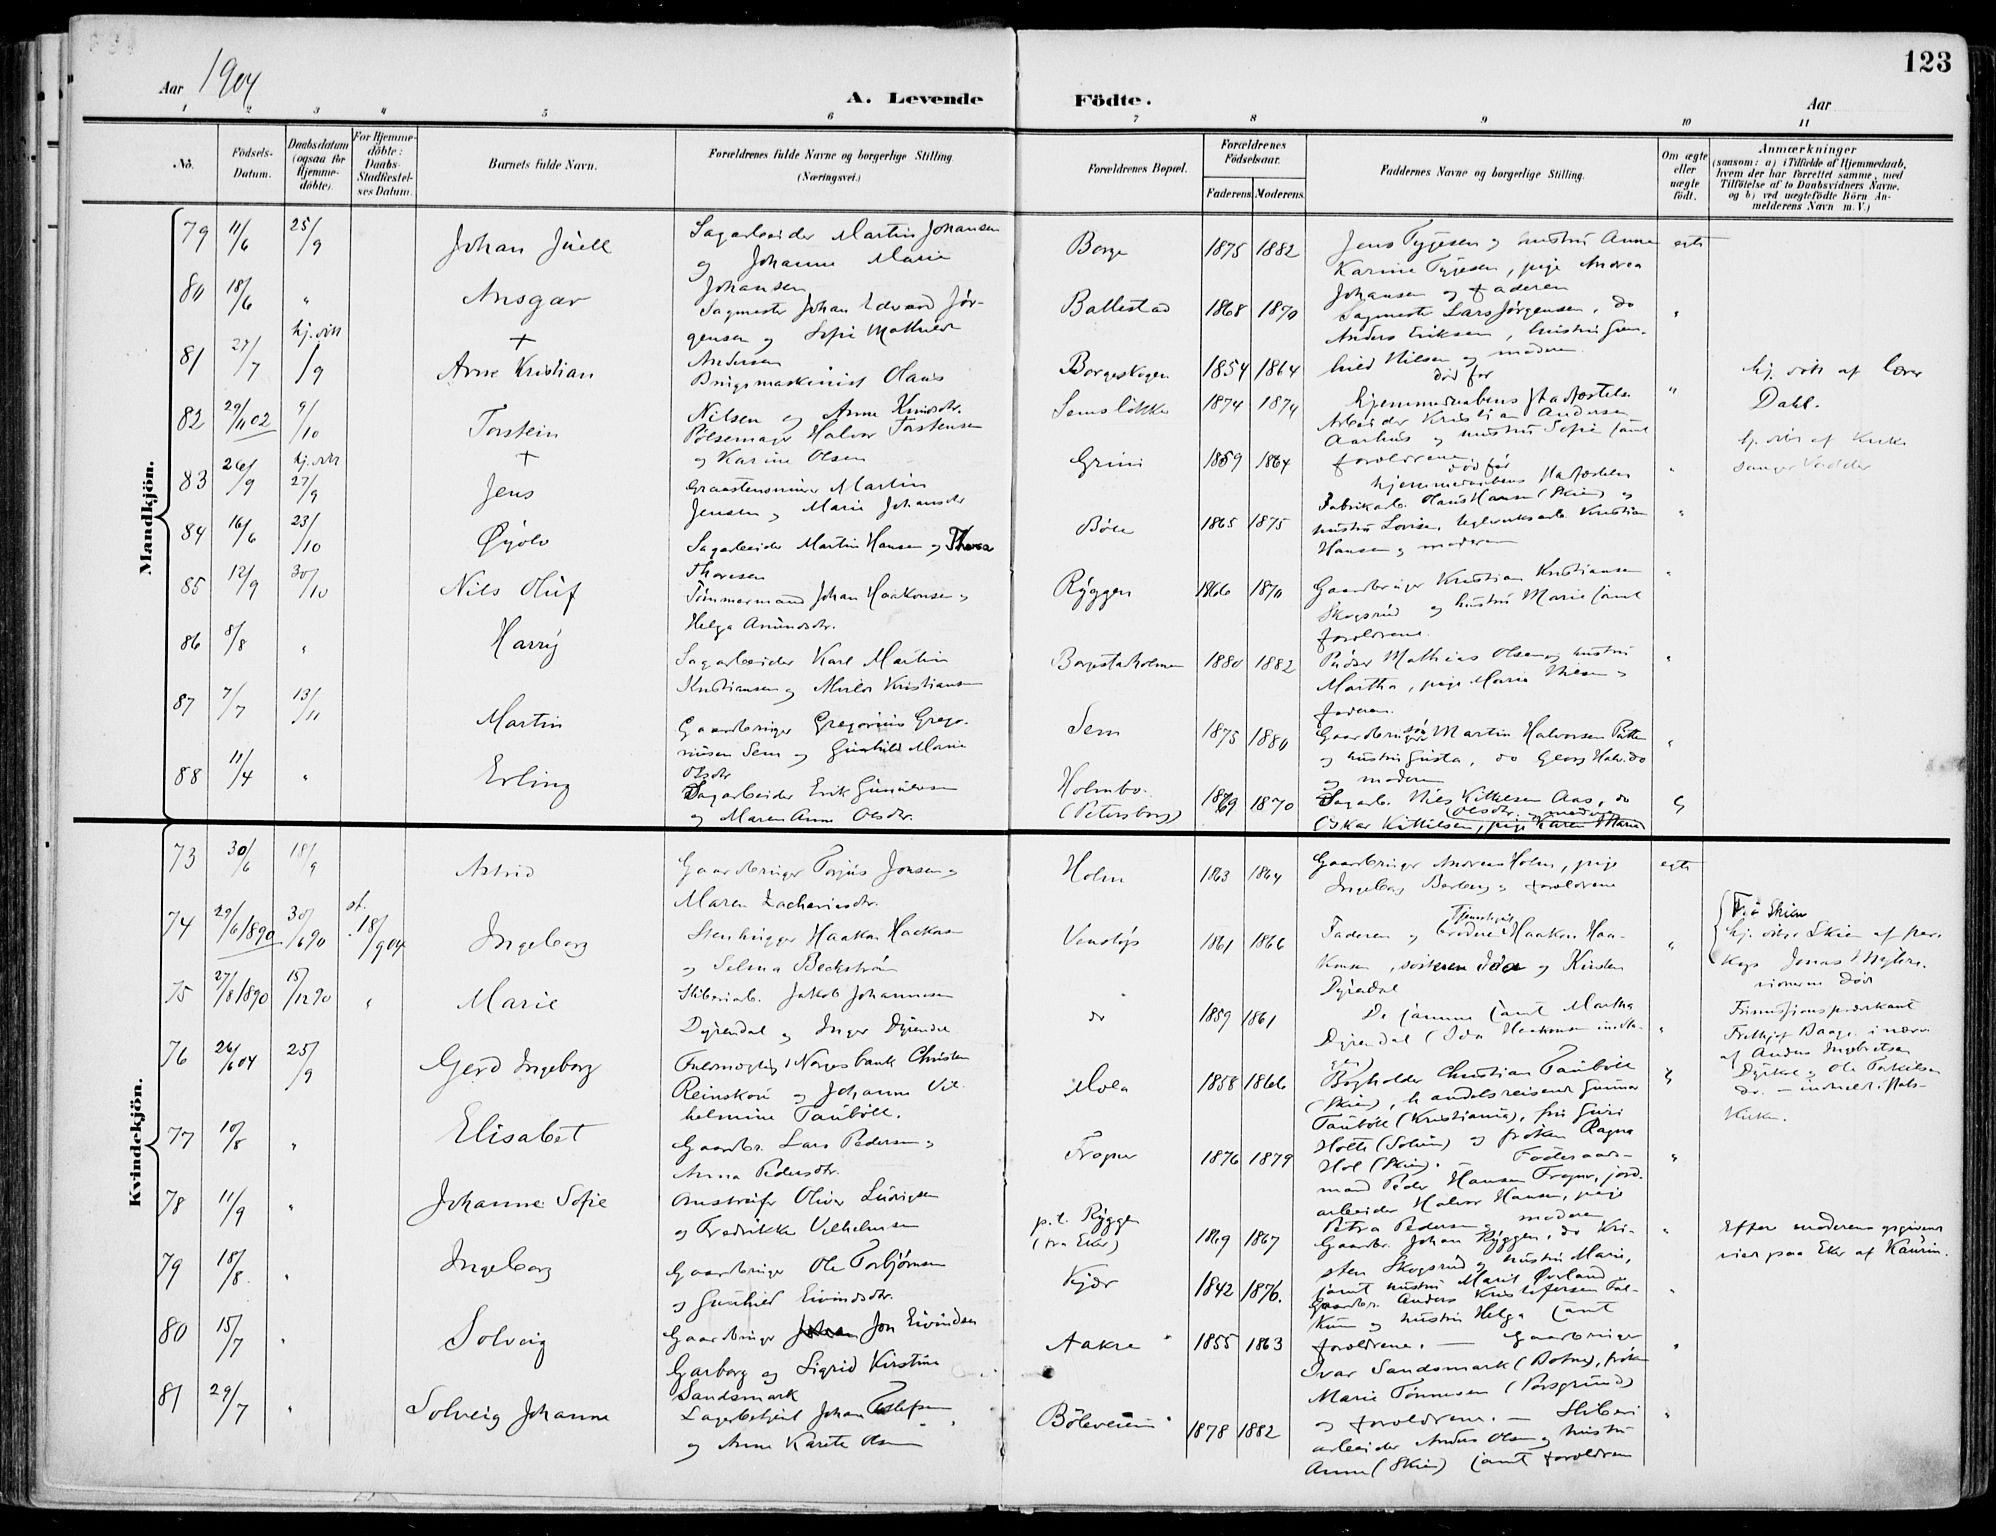 123
Aar 1904
A. Levende Födte.
Aar
1 2 3 4 5 6 7 8 9 10 11
No.
Födsels-Datum.
Daabsdatum (ogsaa for Hjemmedöbte).
For Hjemmedöbte: Daabs-Stadfæstelses Datum.
Barnets fulde Navn.
Forældrenes fulde Navne og borgerlige Stilling. (Næringsvei.)
Forældrenes Bopæl.
Forældrenes Födselsaar.
Faderens. Moderens.
Faddernes Navne og borgerlige Stilling.
Om ægte eller uægte födt.
Anmærkninger
(saasom: a) i Tilfælde af Hjemmedaab,
hvem der har forrettet samme, med
Tilföielse af to Daabsvidners Navne,
og b) ved uægtefödte Börn An-
melderens Navn m. V.)
Mandkjön.
79 11/6 25/9 Johan Juell Sagarbeider Martin Johansen og Johanne Marie Johansen Borge 1875 1882 Jens Tyjesen og hustru Anne Karine Tyjesen, pige Andrea Johansen og faderen egte
80 18/6 " Ansgar Sagmester Johan Edvard Jörgensen og Sofie Mathilde Andersen Ballestad 1868 1870 Sagmester Lars Jörgensen, do Anders Eriksen, hustru Gunhild Nilsen og moderen "
81 27/7 hj. döbt 1/9 + Arne Kristian Brugsmaskinist Olaus Nilsen og Anne Knudsdtr. Borgeskogen 1854 1864 död før hjemmedaabens stadfæstelse " hj. döbt af lærer Dahl.
82 29/11 02 9/10 Torstein Pölsemager Halvor Torstensen og Karine Olsen Semslökke 1874 1874 Arbeider Kristian Andersen Aarhus og hustru Sofie samt forældrene
83 26/9 hj. döbt 27/9 + Jens Graastensminer Martin Jensen og Marie Johansdtr Grini 1859 1864 död før hjemmedaabens stadfæstelse " hj. döbt af Kirkesanger
84 16/6 23/10 Öyolv Sagarbeider Martin Hansen og Thora Thoresen Böle 1865 1875 Fabrikarb. Hans Hansen (Skien) og hustru Lovise, teglverksarb. Kristian Hansen og moderen "
85 12/9 30/10 Nils Oluf Tömmermand Johan Haakonsen og Helga Amundsdtr. Ryggen 1866 1870 Gaardbruger Kristian Kristiansen Skogsrud og hustru Marie samt forældrene. "
86 8/8 " Harry Sagarbeider Karl Martin Kristiansen og Milda Kristiansen Borgestadholmen 1880 1882 Pudser Mathias Olsen og hustru Martha, pige Marie Nilsen og faderen. "
87 7/7 13/11 Martin Gaardbruger Gregorius Gregoriusen Sem og Gunhild Marie Olsdtr Sem 1875 1880 Gaardbruger Martin Halvorsen og hustru Gusta, do Georg Halv. do og moderen "
88 11/4 " Erling Sagarbeider Erik Gunnersen og Maren Anne Olsdtr. Holmbo. (Petersborg) 1869 1870 Sagarb. Nils Kittilsen Aas, do Oskar Kittilsen, pige Karen Marie Olsdtr. og moderen "
Kvindekjön.
73 30/6 18/9 Astrid Gaardbruger Torjus Jonsen og Maren Zachariasdtr. Holm 1863 1864 Gaardbruger Andreas Holm, pige Ingeborg og forældrene egte
74 29/6 1890 30/6 90 st. 18/9 04 Ingeborg Stenhugger Haakon Haakonsen og Selma Beckström Venstöp 1861 1866 Faderen og Haakon Haakonsen, søsteren Ida og Kirsten Dyrendal " Fö Skien hj. döbt i Skien af Jonas
75 27/8 1890 15/12 90 " Marie Sliberiarb. Jakob Johannesen Dyrendal og Inger Dyrendal do 1859 1861 De samme samt Martha Dyrendal (Ida Haakonsen " Frimissionsprædikant Frithjof i nærv. af Anders Ingebretsen og Ole Torkilsen do. indmeldt i Statskirken.
76 26/6 04 25/9 Gerd Ingeborg i Norges bank Christen Reinskou og Johanne Vilhelmine Tauböll. Mæla 1858 1866 Bogholder Christian Tauböll (Skien), handelsreisende Gunnar Tauböll (Kristiania), fru Guri Holte (Solum) og fröken Ragna Hol (Skien). "
77 10/8 " Elisabet Gaardbr. Lars Pedersen og Anna Pedersdtr. Frogner 1876 1879 Föderaadsmand Peder Hansen Frogner, jordarbeider Halvor Hansen, pige Petra Pedersen og moderen "
78 11/9 " Johanne Sofie Oliver Ludvigsen og Fredrikke Vilhelmsen p.t. Ryggen (fra Eker) 1869 1867 Gaardbr. Johan Ryggen, do Kristen Skogsrud og hustru Marie, samt hustru Marit Överland " Efter moderens opgivende viet paa Eker af Kaurin.
79 18/8 " Ingeborg Gaardbruger Ole Torbjörnsen og Gunhild Eivindsdtr. Kjær 1842 1876. Gaardbr. Anders Kristofersen og hustru Helga samt forældrene. "
80 15/7 " Solveig Gaardbruger Jon Eivindsen Garborg og Sigrid Kirstine Sandsmark Aakre 1855 1863 Gaardbruger Ivar Sandsmark, fröken Marie Tönnesen (Porsgrund) og forældrene. "
81 29/7 " Solveig Johanne Lagerbetjent Johan Oslefsen og Anne Karete Olsen Böleveien 1878 1882 Sliberiarbeider Anders Olsen og hustru Anne (Skien) samt forældrene "